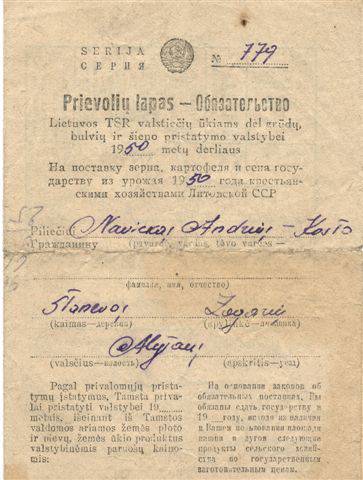 SERIJA
СЕРИЯ
№ 779
Prievolių lapas — Обязательство
Lietuvos TSR valstiečių ūkiams dėl grūdų,
bulvių ir šieno pristatymo valstybei
1950 metų derliaus
На поставку зерна, картофеля и сена госу-
дарству из урожая 1950 года крестьян-
скими хозяйствами Литовской ССР
Piliečiui Navickas Andrius - Kosto
Гражданину (pavardė, vardas, tėvo vardas —
фамилия, имя, отчество)
(kaimas—деревня) (apylinkė—
(valsčius—волость) (apskritis—уезд)
Pagal privalomųjų prista-
tymų įstatymus, Tamsta priva-
lai pristatyti valstybei 19
metais, išeinant iš Tamstos
valdomos ariamos žemės ploto
ir pievų, žemės ūkio produktus
valstybinėmis paruošų kaino-
mis:
На основании законов об
обязательных поставках, Вы
обязаны сдать государству в
19 году, исходя из наличия
в Вашем пользовании площади
пашни и лугов следующие
продукты сельского хозяйст-
ва по государственным
заготовительным ценам.